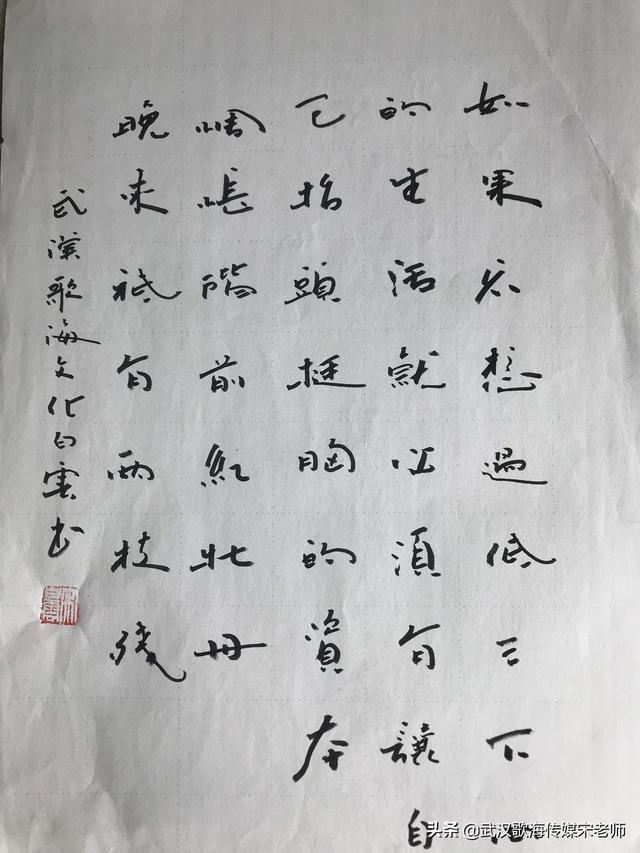 如果不想過低三下
的生活就必須有讓自
己抬頭挺胸的資本
惆悵階前紅牡丹
晚來祇有兩枝殘
武漢歌海文化白雲书
头条 @武汉歌海传媒宋老师